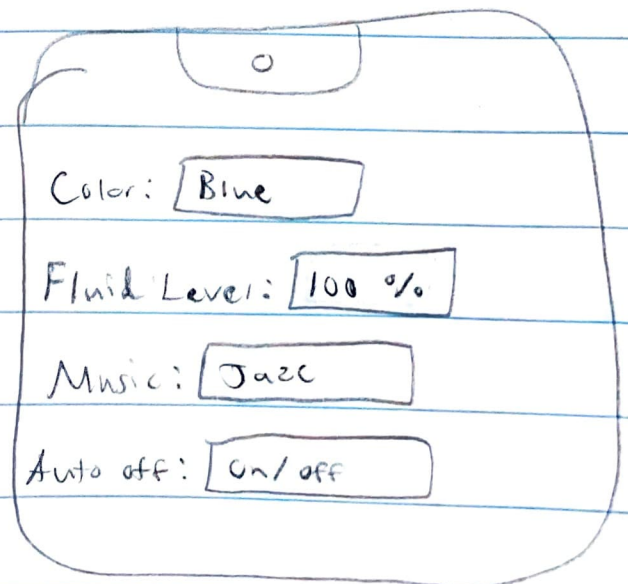 Color: Blue
Fluid Level: 100 %
Music: Jazz
Auto off: on/off